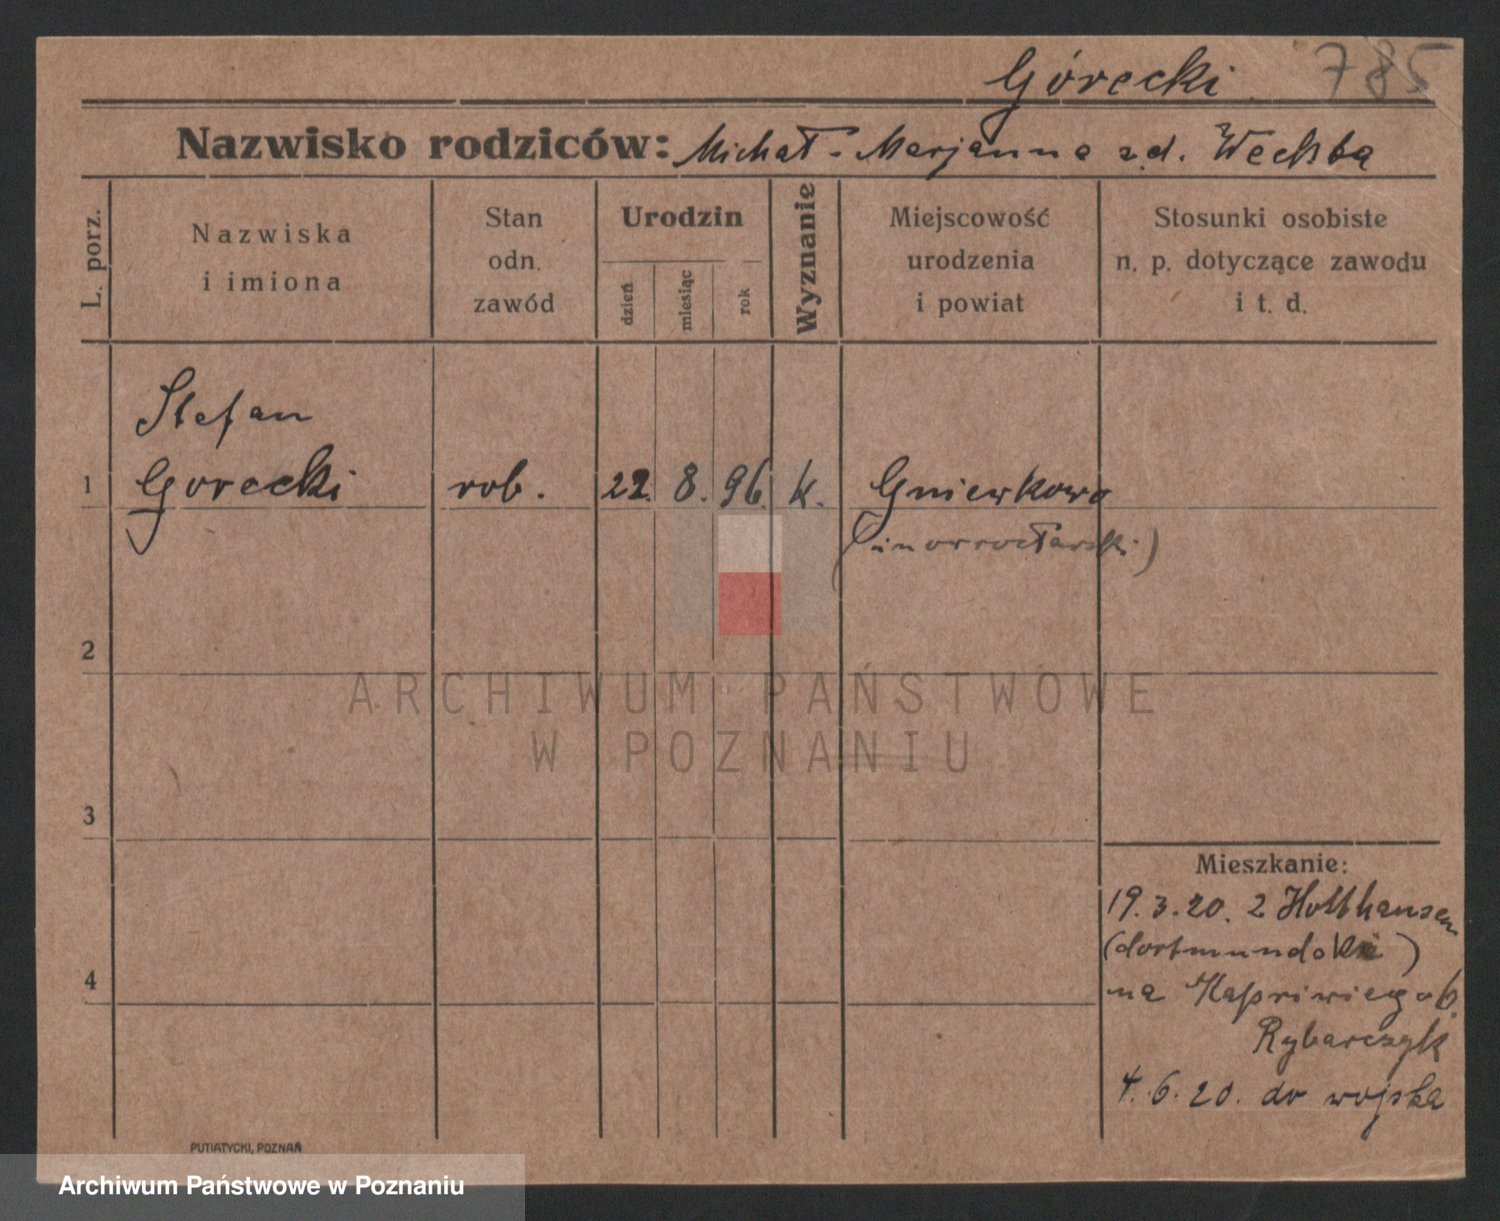 Górecki 785
Nazwisko rodziców: Michał - Marjanna z d. Wechta
L. porz.
Nazwiska
i imiona
Stan
odn.
zawód
Urodzin
dzień
miesiąc
rok
Wyznanie
Miejscowość
urodzenia
i powiat
Stosunki osobiste
n. p. dotyczące zawodu
i t. d.
Stefan
1 Gorecki rob. 22. 8. 96 k. Gniewkowo
2
ARCHIWUM PAŃSTWOWE
W POZNANIU
3
Mieszkanie:
19.3.20. z Holthausen
4
na
Rybarczyk
4.6.20. do wojska
PUTIATYCKI, POZNAŃ
Archiwum Państwowe w Poznaniu